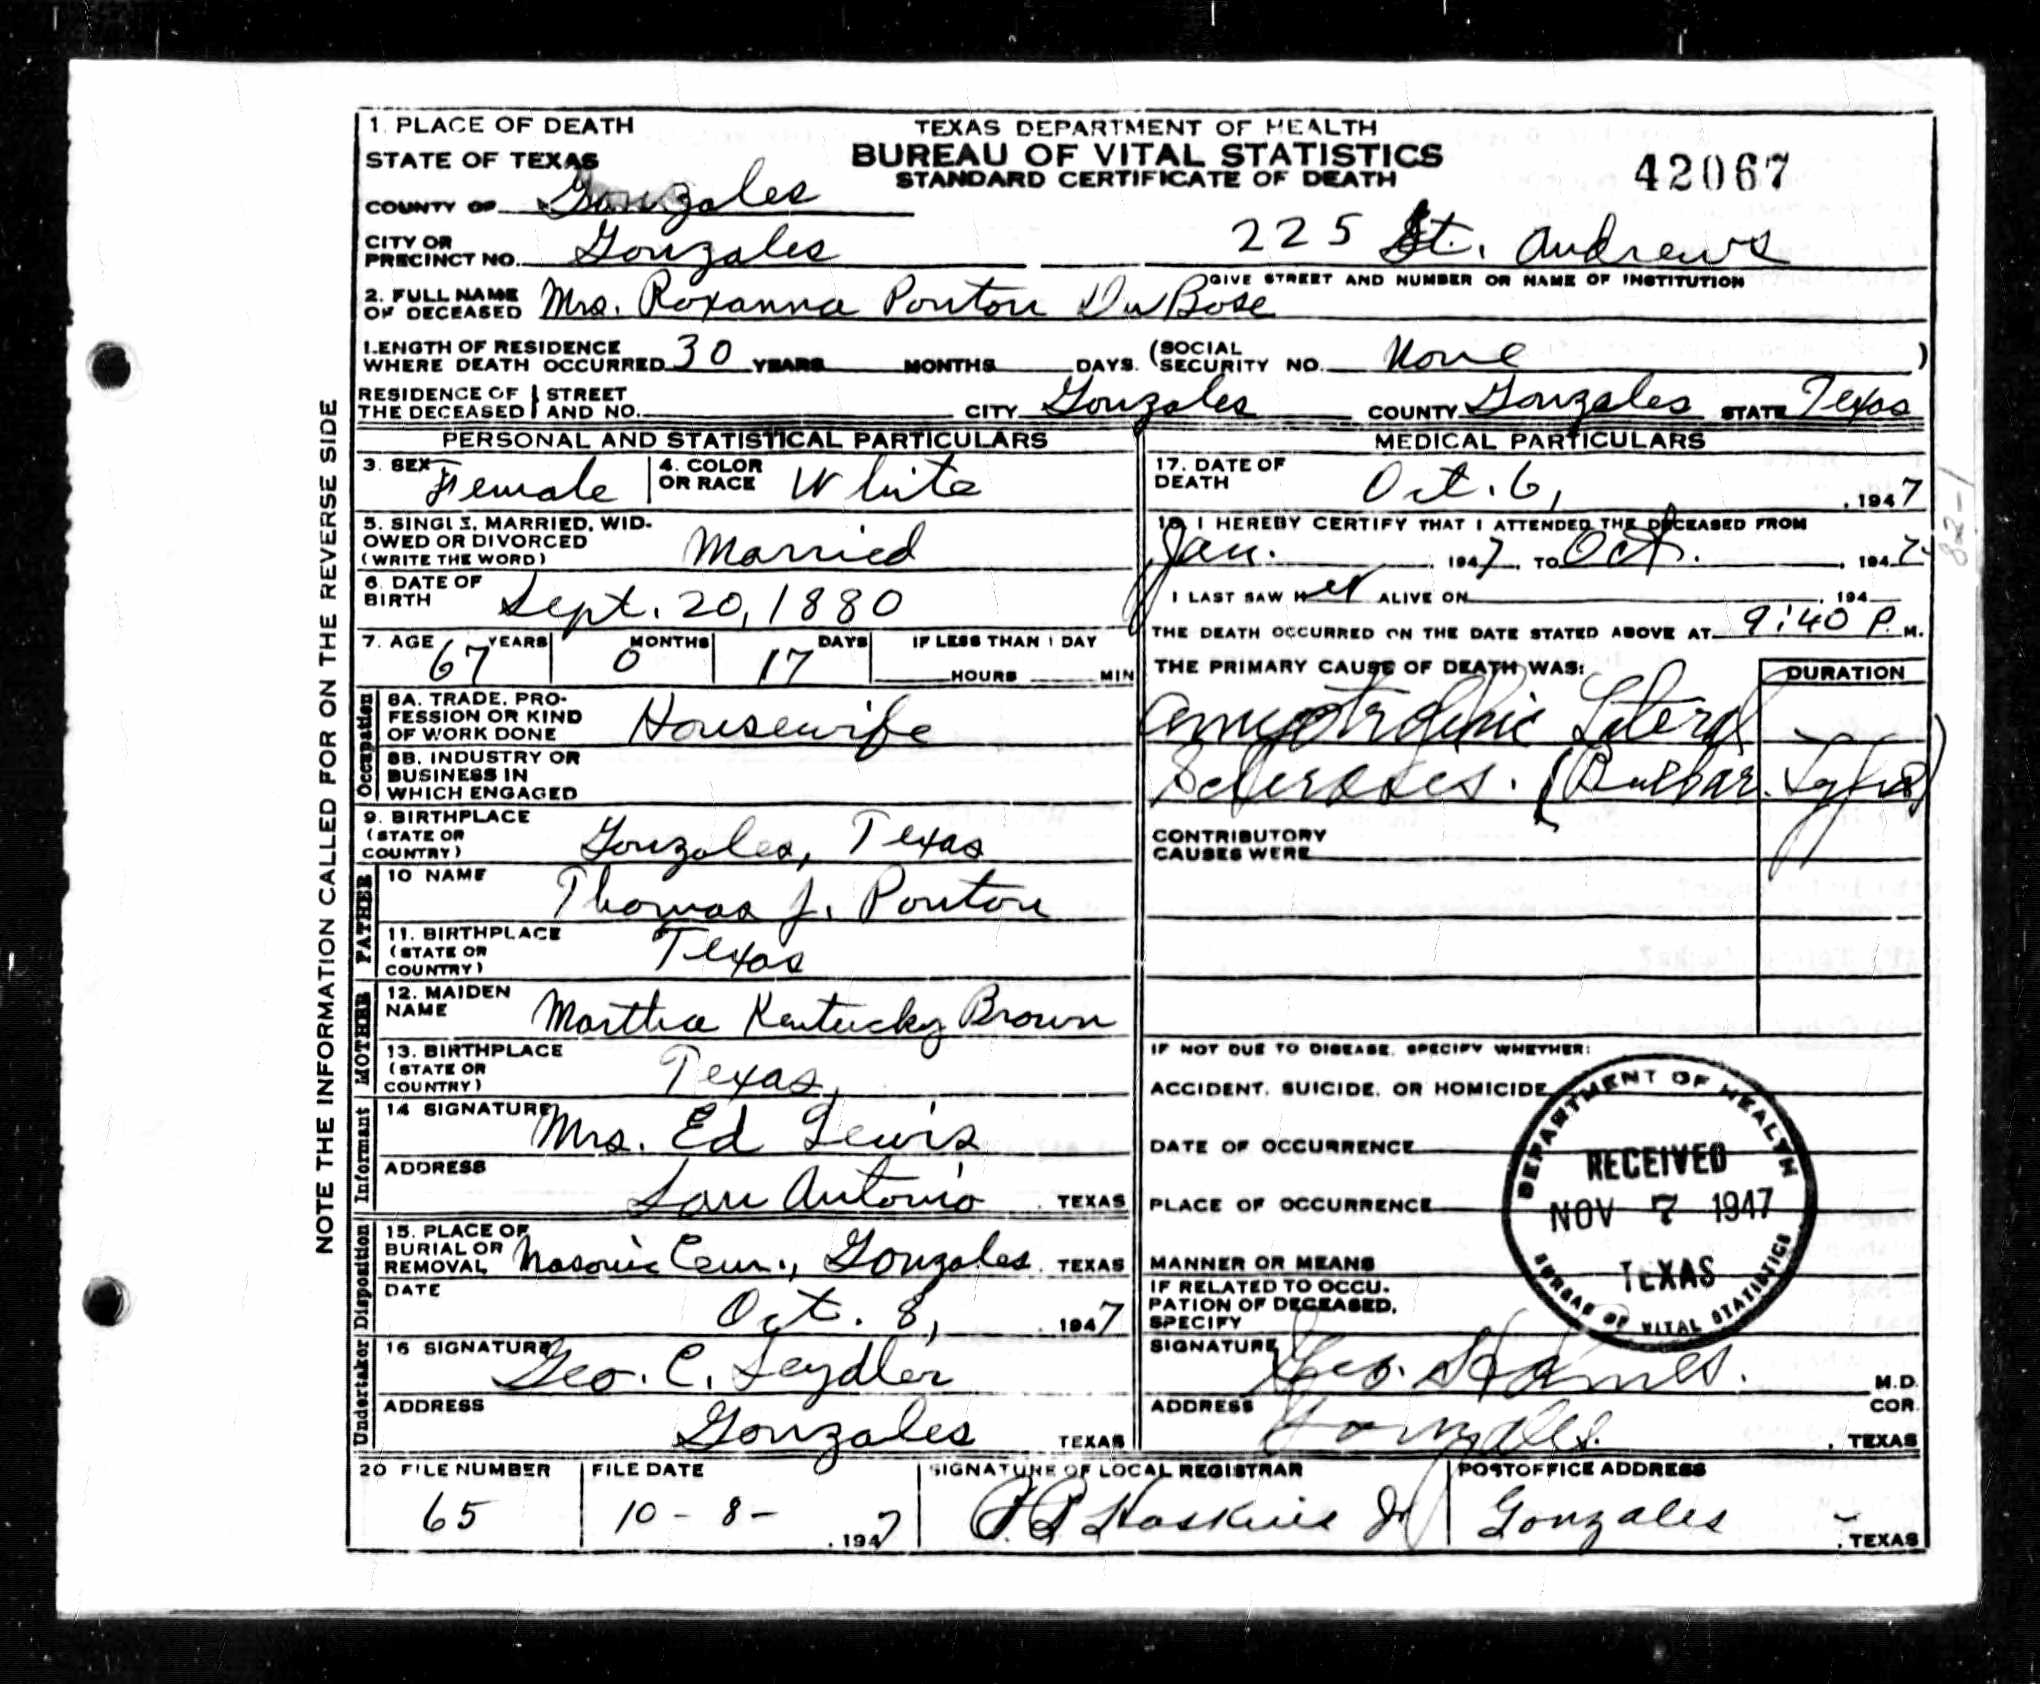 1. PLACE OF DEATH
STATE OF TEXAS
COUNTY OF Gonzales
TEXAS DEPARTMENT OF HEALTH
BUREAU OF VITAL STATISTICS
STANDARD CERTIFICATE OF DEATH
42067
CITY OR PRECINCT NO. Gonzales
225 St. Andrews
GIVE STREET AND NUMBER OR NAME OF INSTITUTION
2. FULL NAME OF DECEASED Mrs. Roxanna Ponton DuBose
LENGTH OF RESIDENCE WHERE DEATH OCCURRED 30 YEARS MONTHS DAYS. (SOCIAL SECURITY NO. None )
RESIDENCE OF THE DECEASED STREET AND NO. CITY Gonzales COUNTY Gonzales STATE Texas
PERSONAL AND STATISTICAL PARTICULARS
3. SEX Female 4. COLOR OR RACE White
5. SINGLE, MARRIED, WIDOWED OR DIVORCED (WRITE THE WORD) Married
6. DATE OF BIRTH Sept. 20, 1880
7. AGE 67 YEARS 0 MONTHS 17 DAYS IF LESS THAN 1 DAY HOURS MIN
Occupation
8A. TRADE, PROFESSION OR KIND OF WORK DONE Housewife
8B. INDUSTRY OR BUSINESS IN WHICH ENGAGED
9. BIRTHPLACE (STATE OR COUNTRY) Gonzales, Texas
FATHER
10 NAME Thomas J. Ponton
11. BIRTHPLACE (STATE OR COUNTRY) Texas
MOTHER
12. MAIDEN NAME Martha Kentucky Brown
13. BIRTHPLACE (STATE OR COUNTRY) Texas,
Informant
14 SIGNATURE Mrs. Ed Lewis
ADDRESS San Antonio TEXAS
Disposition
15. PLACE OF BURIAL OR REMOVAL Masonic Cem., Gonzales TEXAS
DATE Oct. 8, 1947
Undertaker
16 SIGNATURE Geo. C. Seydler
ADDRESS Gonzales TEXAS
MEDICAL PARTICULARS
17. DATE OF DEATH Oct. 6, , 1947
18 I HEREBY CERTIFY THAT I ATTENDED THE DECEASED FROM
Jan. 1947, TO Oct. , 1947
I LAST SAW Her ALIVE ON , 194
THE DEATH OCCURRED ON THE DATE STATED ABOVE AT 9:40 P. M.
THE PRIMARY CAUSE OF DEATH WAS: DURATION
Amyotrophic Lateral
Scleroses. (Bulbar Type)
CONTRIBUTORY CAUSES WERE
IF NOT DUE TO DISEASE, SPECIFY WHETHER:
ACCIDENT, SUICIDE, OR HOMICIDE
DATE OF OCCURRENCE
PLACE OF OCCURRENCE
MANNER OR MEANS
IF RELATED TO OCCUPATION OF DECEASED, SPECIFY
SIGNATURE Geo. Holmes. M.D.
COR.
ADDRESS Gonzales. , TEXAS
DEPARTMENT OF HEALTH
RECEIVED
NOV 7 1947
TEXAS
BUREAU OF VITAL STATISTICS
20 FILE NUMBER 65
FILE DATE 10-8- , 1947
SIGNATURE OF LOCAL REGISTRAR Haskins Jr
POSTOFFICE ADDRESS Gonzales , TEXAS
NOTE THE INFORMATION CALLED FOR ON THE REVERSE SIDE